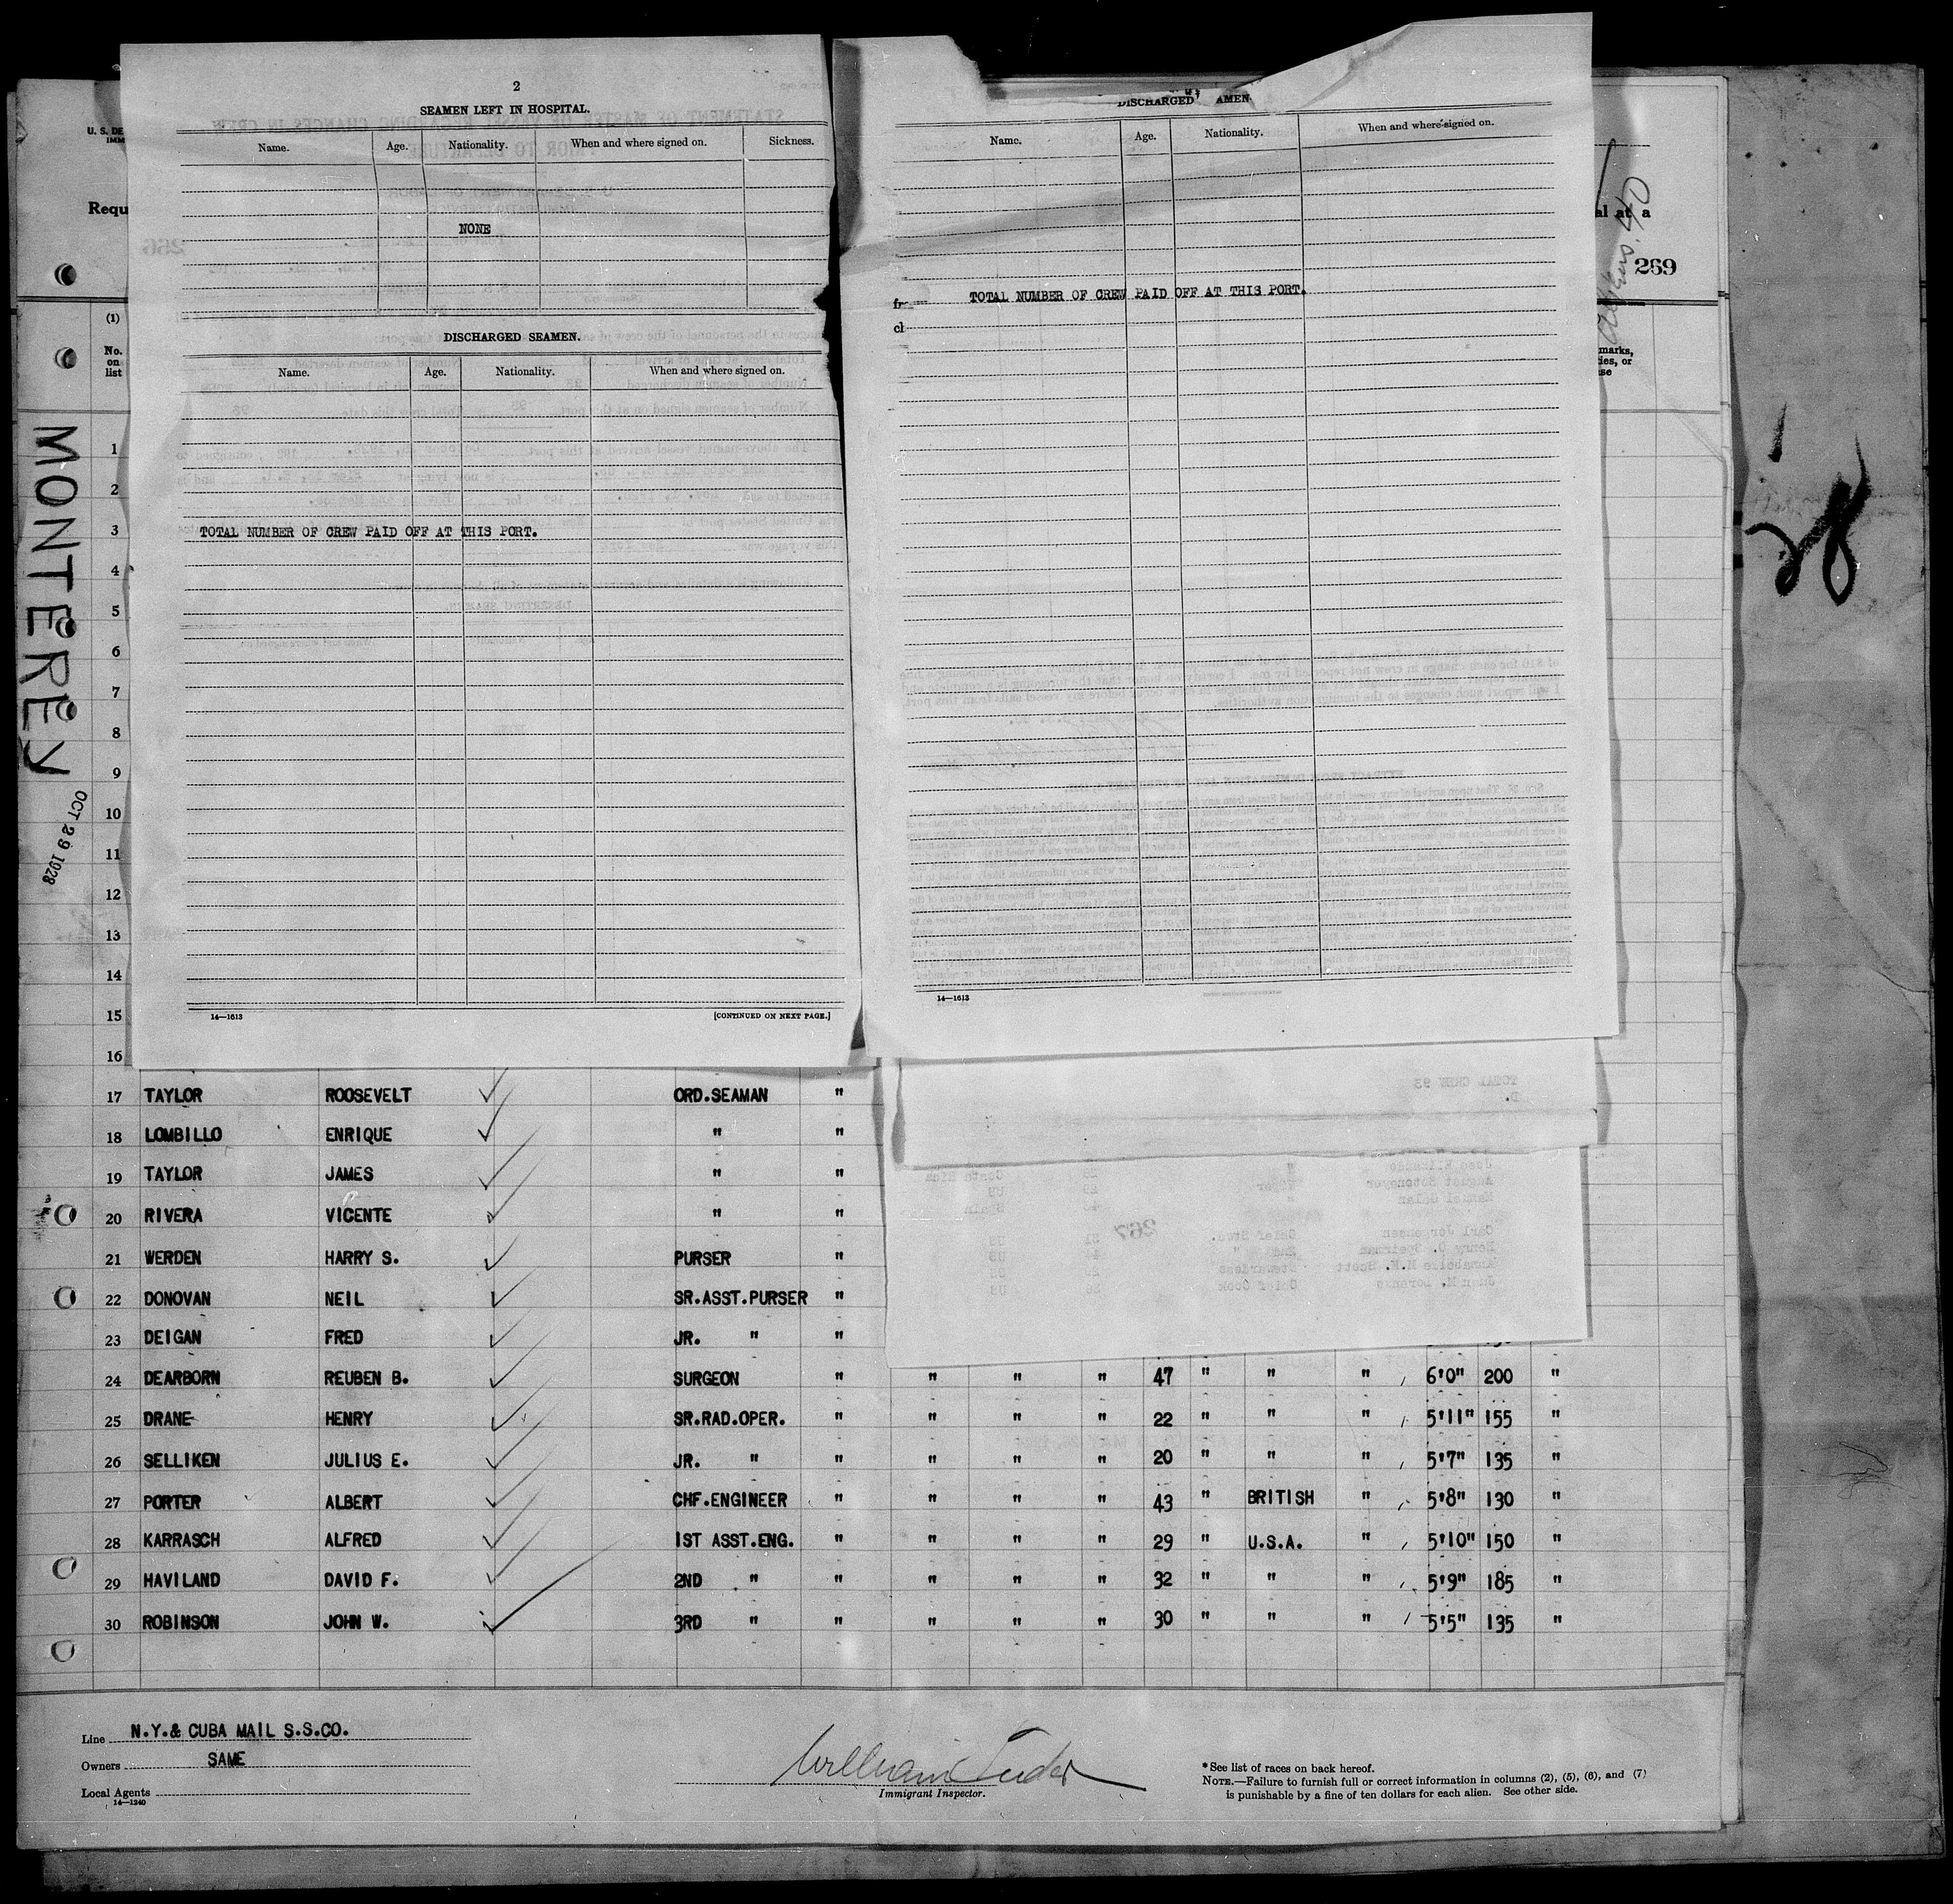 2
SEAMEN LEFT IN HOSPITAL.
Name. Age. Nationality. When and where signed on. Sickness.
NONE
DISCHARGED SEAMEN.
Name. Age. Nationality. When and where signed on.
TOTAL NUMBER OF CREW PAID OFF AT THIS PORT.
14—1613 [CONTINUED ON NEXT PAGE.]
DISCHARGED AMEN
Name. Age. Nationality. When and where signed on.
TOTAL NUMBER OF CREW PAID OFF AT THIS PORT.
14—1613
U. S. DE
IMM
Requ
al at a
269
(1)
No.
on
list
marks,
ies, or
se
MONTEREY
OCT 29 1928
28
1
2
3
4
5
6
7
8
9
10
11
12
13
14
15
16
17 TAYLOR ROOSEVELT ORD.SEAMAN "
18 LOMBILLO ENRIQUE " "
19 TAYLOR JAMES " "
20 RIVERA VICENTE " "
21 WERDEN HARRY S. PURSER "
22 DONOVAN NEIL SR.ASST.PURSER "
23 DEIGAN FRED JR. " "
24 DEARBORN REUBEN B. SURGEON " " " " 47 " " " 6'0" 200 "
25 DRANE HENRY SR.RAD.OPER. " " " " 22 " " " 5'11" 155 "
26 SELLIKEN JULIUS E. JR. " " " " " 20 " " " 5'7" 135 "
27 PORTER ALBERT CHF.ENGINEER " " " " 43 " BRITISH " 5'8" 130 "
28 KARRASCH ALFRED 1ST ASST.ENG. " " " " 29 " U.S.A. " 5'10" 150 "
29 HAVILAND DAVID F. 2ND " " " " " 32 " " " 5'9" 185 "
30 ROBINSON JOHN W. 3RD " " " " " 30 " " " 5'5" 135 "
Line N.Y.& CUBA MAIL S.S.CO.
Owners SAME
Local Agents
14—1240
William Tudor
Immigrant Inspector.
* See list of races on back hereof.
NOTE.—Failure to furnish full or correct information in columns (2), (5), (6), and (7)
is punishable by a fine of ten dollars for each alien. See other side.